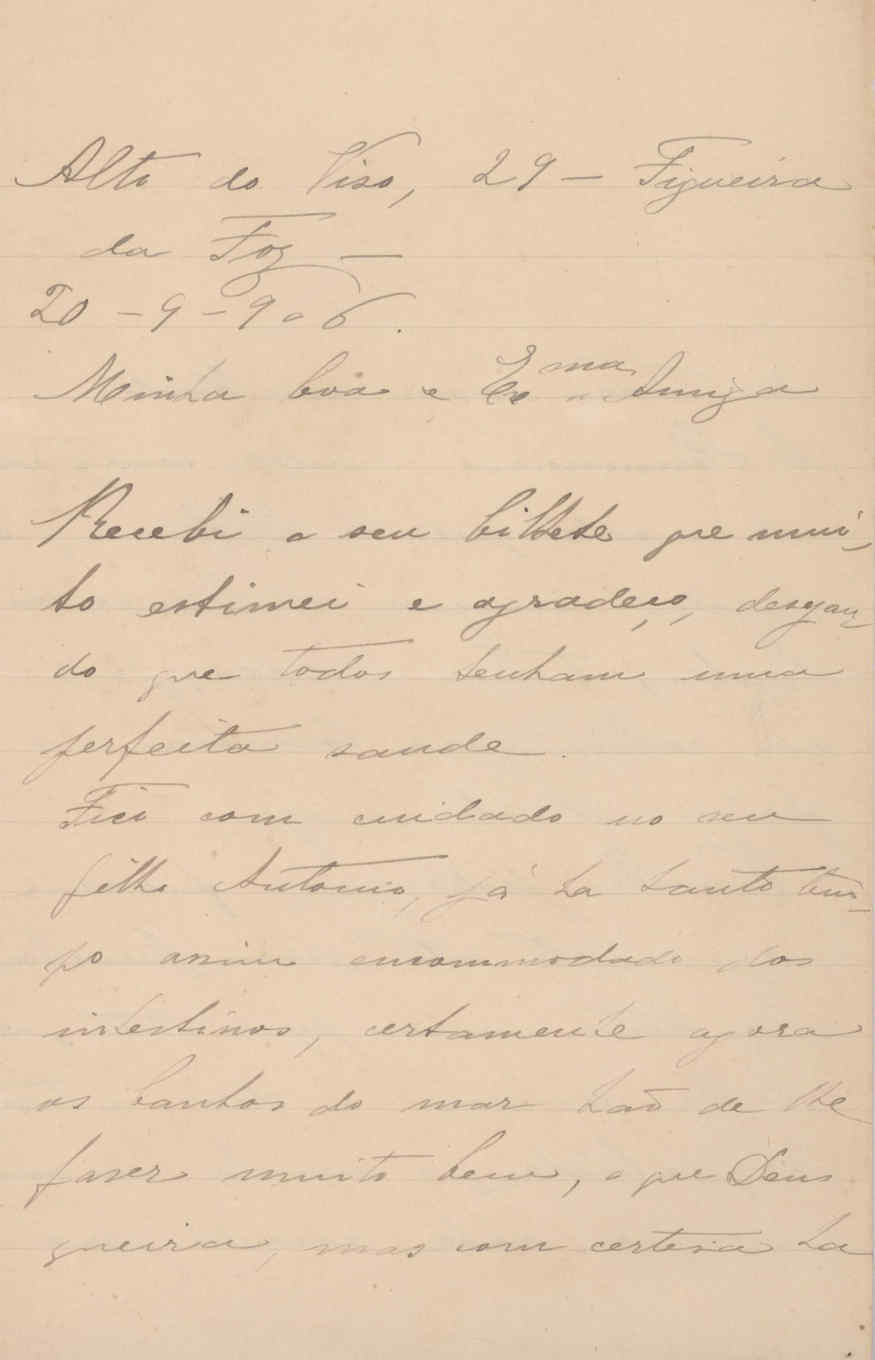 Alto do Viso, 29 – Figueira
da Foz –
20 – 9 – 906.
Minha bôa e Ex.ma Amiga
Recebi o seu bilhete que mui-
to estimei e agradeço, desejan-
do que todos tenham uma
perfeita saude.
Fico com cuidado no seu
filho Antonio, já ha tanto tem-
po assim encommodado dos
intestinos, certamente agora
os banhos do mar hão de lhe
faser muito bem, o que Deus
queira, mas com certesa ha